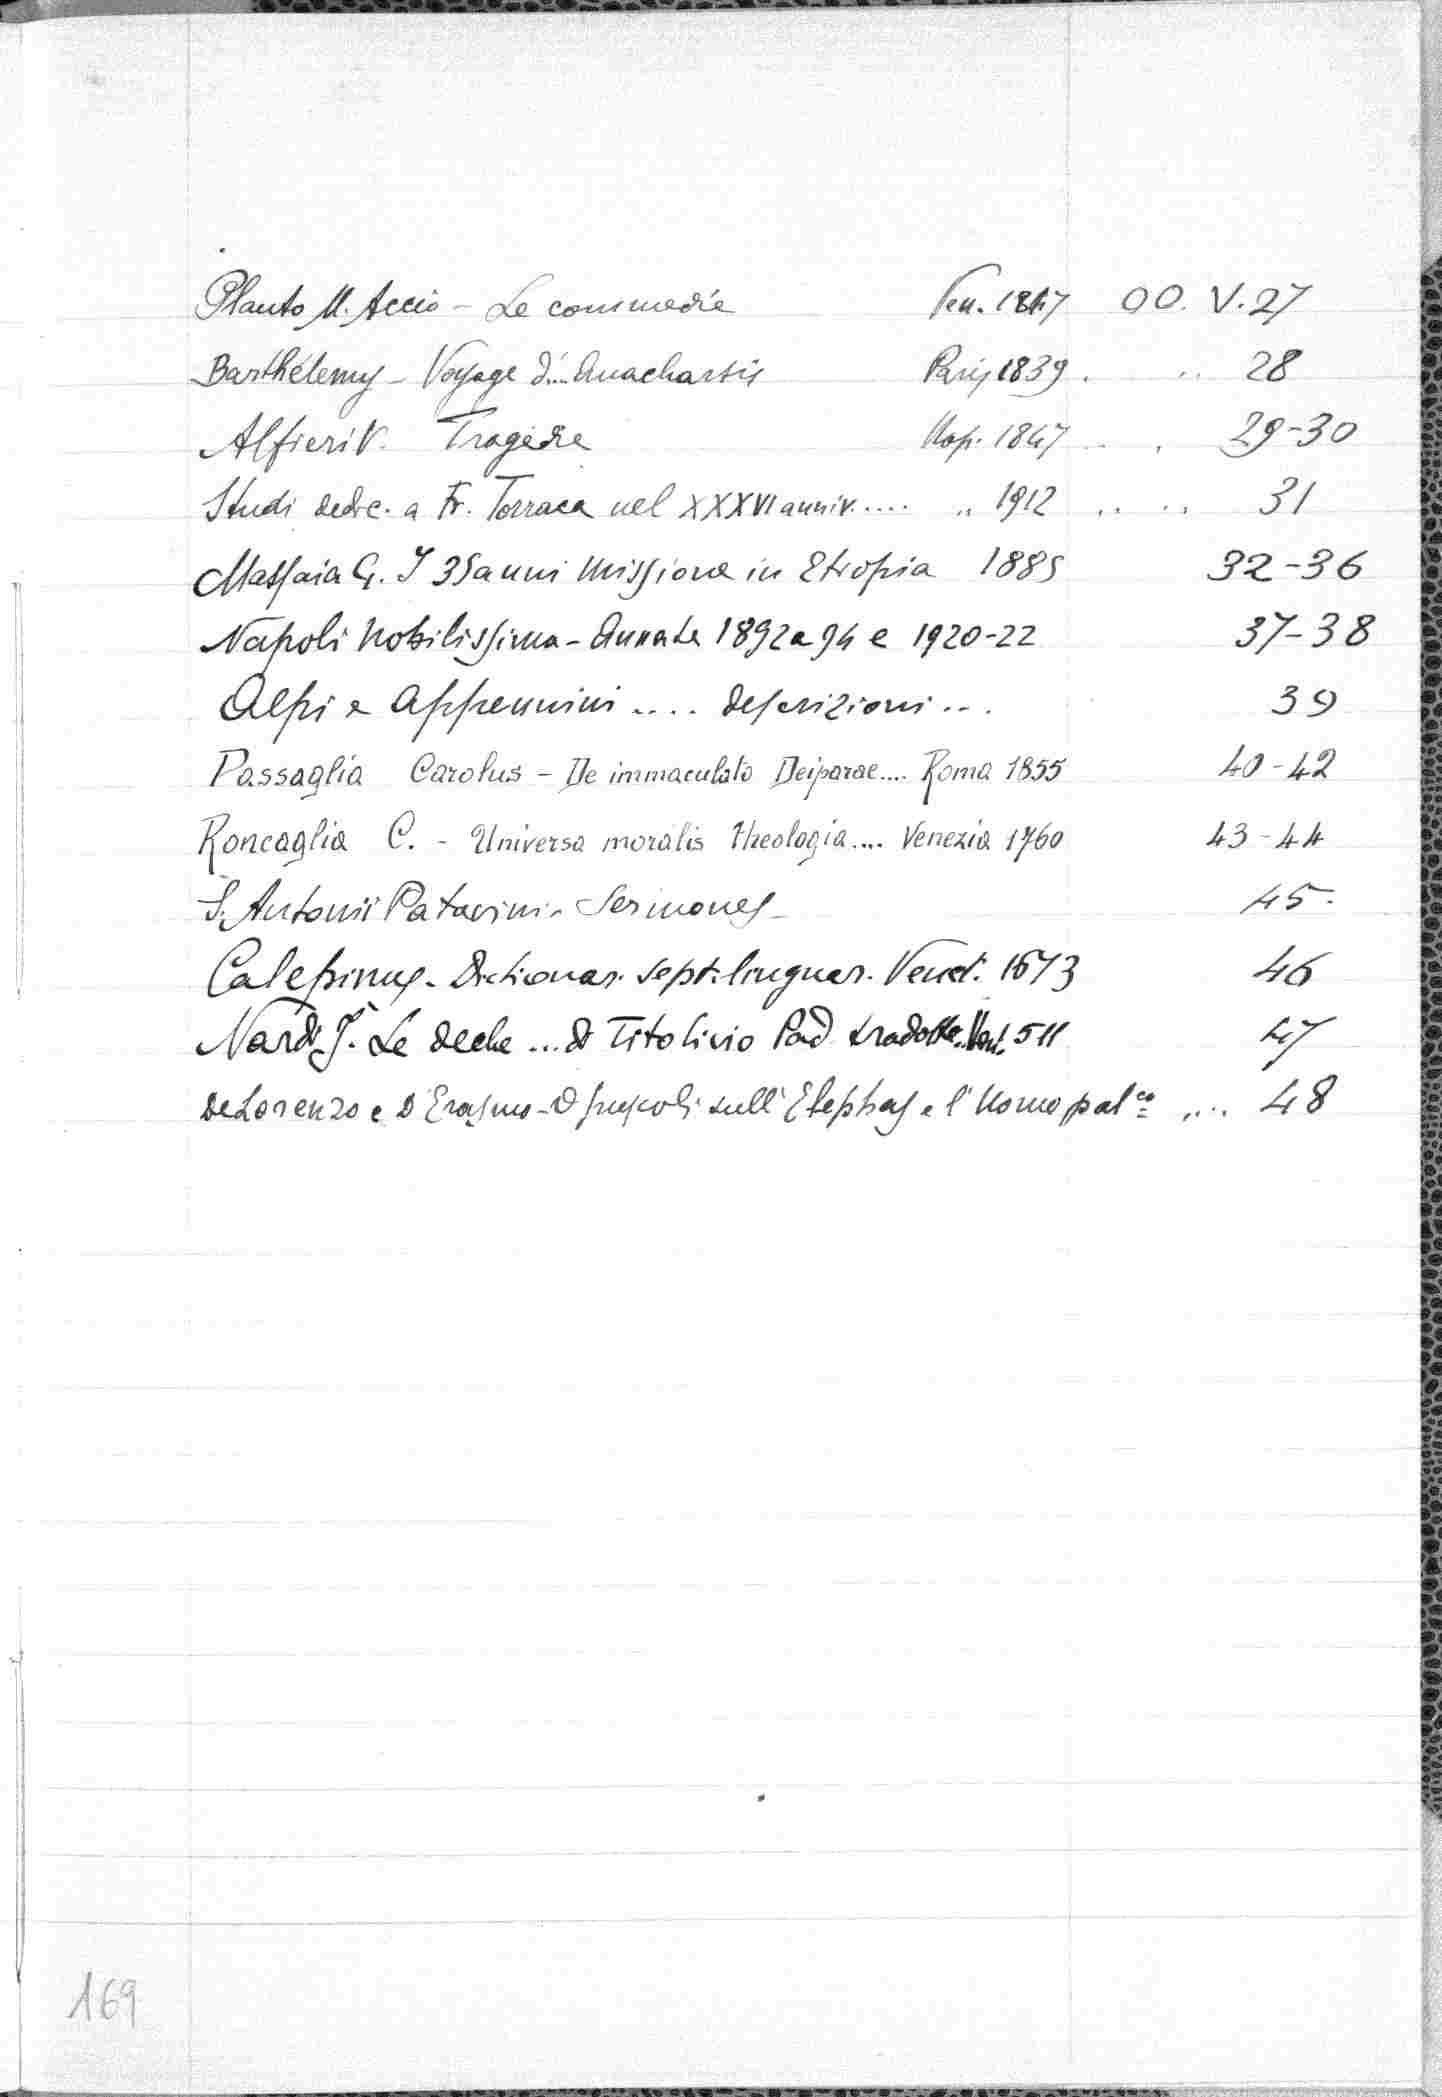 Plauto M. Accio - Le commedie Ven. 1847 OO. V. 27
Barthélemy - Voyage d'.... Anacharsis Paris 1839 . .. 28
Alfieri V. Tragedie Nap. 1847 .. . 29-30
Studi dedic. a Fr. Torraca nel XXXVI anniv..... .. 1912 .. .. 31
Massaia G. I 35 anni missione in Etiopia 1885 32-36
Napoli Nobilissima - Annate 1892 a 94 e 1920-22 37-38
Alpi e Appennini .... descrizioni ... 39
Passaglia Carolus - De immaculato Deiparae.... Roma 1855 40-42
Roncaglia C. - Universa moralis theologia.... Venezia 1760 43-44
S. Antonii Patavini - Sermones - 45-
Calepinus - Dictionar. Septilinguar. Venet. 1673 46
Nardi J. Le deche ... di Tito Livio Pad tradotte. Ven. 511 47
De Lorenzo e D'Erasmo - Opuscoli sull'Elephas e l'Uomo pal.co ,... 48
169